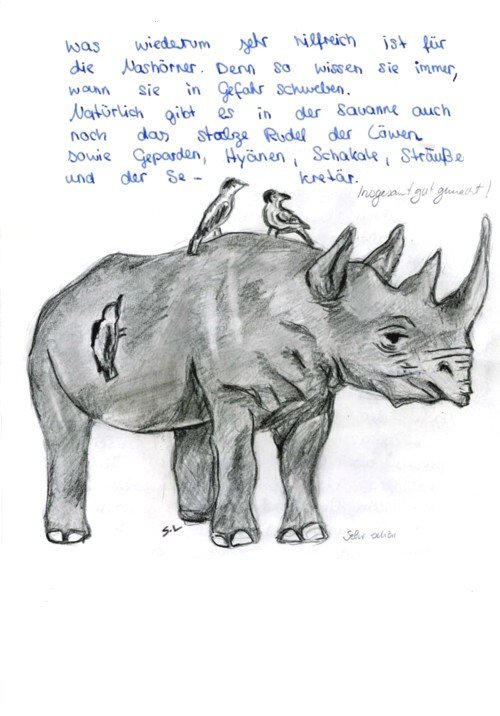 was wiederum sehr hilfreich ist für
die Nashörner. Denn so wissen sie immer,
wann sie in Gefahr schweben.
Natürlich gibt es in der Savanne auch
noch das stolze Rudel der Löwen
sowie Geparden, Hyänen, Schakale, Sträuße
und der Se- kretär.
Insgesamt gut gemacht!
S.L
Sehr schön